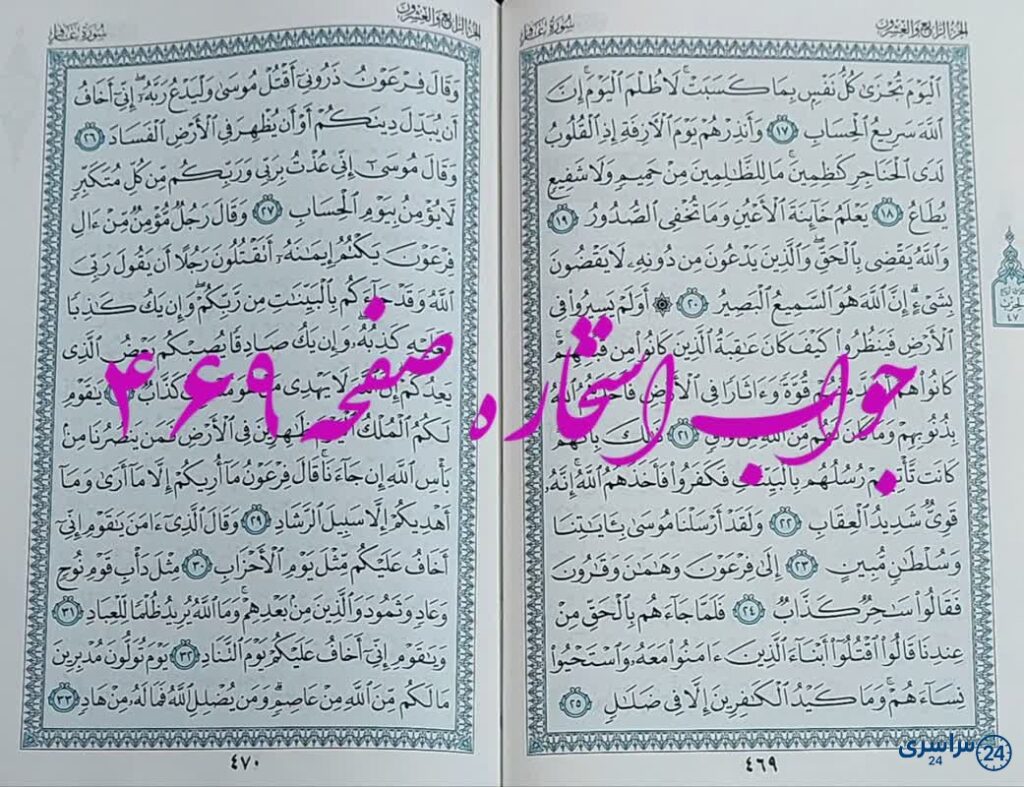 الجزء الرابع والعشرون
سورة غافر
ٱلۡيَوۡمَ تُجۡزَىٰ كُلُّ نَفۡسِۭ بِمَا كَسَبَتۡۚ لَا ظُلۡمَ ٱلۡيَوۡمَۚ إِنَّ
ٱللَّهَ سَرِيعُ ٱلۡحِسَابِ ١٧ وَأَنذِرۡهُمۡ يَوۡمَ ٱلۡأٓزِفَةِ إِذِ ٱلۡقُلُوبُ
لَدَى ٱلۡحَنَاجِرِ كَٰظِمِينَۚ مَا لِلظَّٰلِمِينَ مِنۡ حَمِيمٖ وَلَا شَفِيعٖ
يُطَاعُ ١٨ يَعۡلَمُ خَآئِنَةَ ٱلۡأَعۡيُنِ وَمَا تُخۡفِي ٱلصُّدُورُ ١٩
وَٱللَّهُ يَقۡضِي بِٱلۡحَقِّۖ وَٱلَّذِينَ يَدۡعُونَ مِن دُونِهِۦ لَا يَقۡضُونَ
بِشَيۡءٍۗ إِنَّ ٱللَّهَ هُوَ ٱلسَّمِيعُ ٱلۡبَصِيرُ ٢٠ ۞ أَوَلَمۡ يَسِيرُواْ فِي
ٱلۡأَرۡضِ فَيَنظُرُواْ كَيۡفَ كَانَ عَٰقِبَةُ ٱلَّذِينَ كَانُواْ مِن قَبۡلِهِمۡۚ
كَانُواْ هُمۡ أَشَدَّ مِنۡهُمۡ قُوَّةٗ وَءَاثَارٗا فِي ٱلۡأَرۡضِ فَأَخَذَهُمُ ٱللَّهُ
بِذُنُوبِهِمۡ وَمَا كَانَ لَهُم مِّنَ ٱللَّهِ مِن وَاقٖ ٢١ ذَٰلِكَ بِأَنَّهُمۡ
كَانَت تَّأۡتِيهِمۡ رُسُلُهُم بِٱلۡبَيِّنَٰتِ فَكَفَرُواْ فَأَخَذَهُمُ ٱللَّهُۚ إِنَّهُۥ
قَوِيّٞ شَدِيدُ ٱلۡعِقَابِ ٢٢ وَلَقَدۡ أَرۡسَلۡنَا مُوسَىٰ بِـَٔايَٰتِنَا
وَسُلۡطَٰنٖ مُّبِينٍ ٢٣ إِلَىٰ فِرۡعَوۡنَ وَهَٰمَٰنَ وَقَٰرُونَ
فَقَالُواْ سَٰحِرٞ كَذَّابٞ ٢٤ فَلَمَّا جَآءَهُم بِٱلۡحَقِّ مِنۡ
عِندِنَا قَالُواْ ٱقۡتُلُوٓاْ أَبۡنَآءَ ٱلَّذِينَ ءَامَنُواْ مَعَهُۥ وَٱسۡتَحۡيُواْ
نِسَآءَهُمۡۚ وَمَا كَيۡدُ ٱلۡكَٰفِرِينَ إِلَّا فِي ضَلَٰلٖ ٢٥
الحزب
٤٧
٤٦٩
الجزء الرابع والعشرون
سورة غافر
وَقَالَ فِرۡعَوۡنُ ذَرُونِيٓ أَقۡتُلۡ مُوسَىٰ وَلۡيَدۡعُ رَبَّهُۥٓۖ إِنِّيٓ أَخَافُ
أَن يُبَدِّلَ دِينَكُمۡ أَوۡ أَن يُظۡهِرَ فِي ٱلۡأَرۡضِ ٱلۡفَسَادَ ٢٦
وَقَالَ مُوسَىٰٓ إِنِّي عُذۡتُ بِرَبِّي وَرَبِّكُم مِّن كُلِّ مُتَكَبِّرٖ
لَّا يُؤۡمِنُ بِيَوۡمِ ٱلۡحِسَابِ ٢٧ وَقَالَ رَجُلٞ مُّؤۡمِنٞ مِّنۡ ءَالِ
فِرۡعَوۡنَ يَكۡتُمُ إِيمَٰنَهُۥٓ أَتَقۡتُلُونَ رَجُلًا أَن يَقُولَ رَبِّيَ
ٱللَّهُ وَقَدۡ جَآءَكُم بِٱلۡبَيِّنَٰتِ مِن رَّبِّكُمۡۖ وَإِن يَكُ كَٰذِبٗا
فَعَلَيۡهِ كَذِبُهُۥۖ وَإِن يَكُ صَادِقٗا يُصِبۡكُم بَعۡضُ ٱلَّذِي
يَعِدُكُمۡۖ إِنَّ ٱللَّهَ لَا يَهۡدِي مَنۡ هُوَ مُسۡرِفٞ كَذَّابٞ ٢٨ يَٰقَوۡمِ
لَكُمُ ٱلۡمُلۡكُ ٱلۡيَوۡمَ ظَٰهِرِينَ فِي ٱلۡأَرۡضِ فَمَن يَنصُرُنَا مِنۢ
بَأۡسِ ٱللَّهِ إِن جَآءَنَاۚ قَالَ فِرۡعَوۡنُ مَآ أُرِيكُمۡ إِلَّا مَآ أَرَىٰ وَمَآ
أَهۡدِيكُمۡ إِلَّا سَبِيلَ ٱلرَّشَادِ ٢٩ وَقَالَ ٱلَّذِيٓ ءَامَنَ يَٰقَوۡمِ إِنِّيٓ
أَخَافُ عَلَيۡكُم مِّثۡلَ يَوۡمِ ٱلۡأَحۡزَابِ ٣٠ مِثۡلَ دَأۡبِ قَوۡمِ نُوحٖ
وَعَادٖ وَثَمُودَ وَٱلَّذِينَ مِنۢ بَعۡدِهِمۡۚ وَمَا ٱللَّهُ يُرِيدُ ظُلۡمٗا لِّلۡعِبَادِ ٣١
وَيَٰقَوۡمِ إِنِّيٓ أَخَافُ عَلَيۡكُمۡ يَوۡمَ ٱلتَّنَادِ ٣٢ يَوۡمَ تُوَلُّونَ مُدۡبِرِينَ
مَا لَكُم مِّنَ ٱللَّهِ مِنۡ عَاصِمٖۗ وَمَن يُضۡلِلِ ٱللَّهُ فَمَا لَهُۥ مِنۡ هَادٖ ٣٣
٤٧٠
جواب استخاره صفحه ۴۶۹
سراسری
24
24